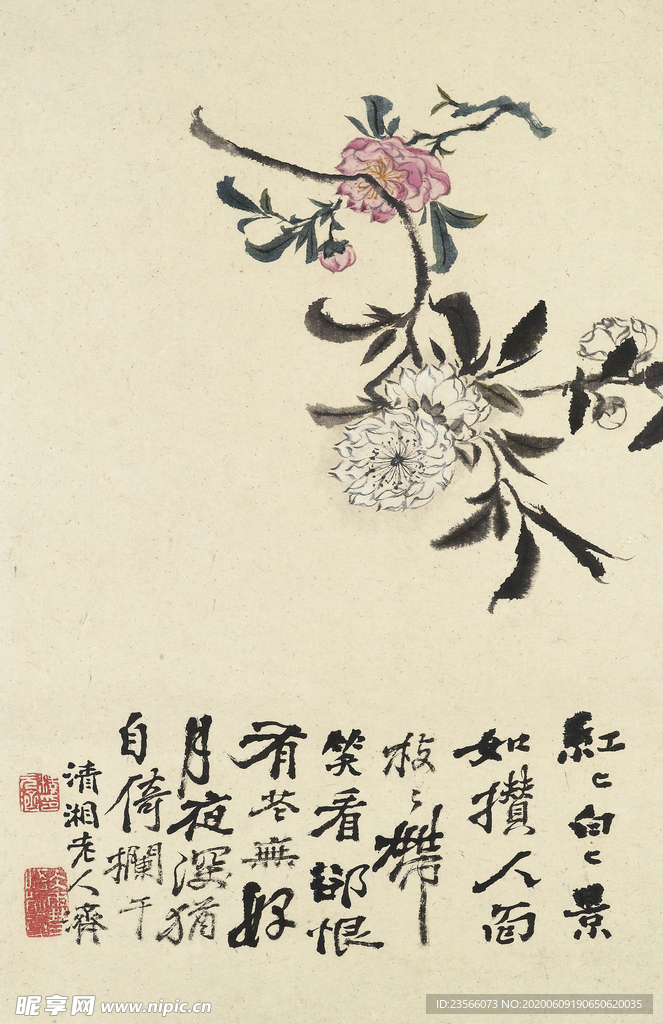 紅〻白〻景
如攢人面
枝〻帶
笑看郤恨
有花無好
月夜深猶
自倚攔干
清湘老人濟
昵享网 www.nipic.cn
ID:23566073 NO:20200609190650620035